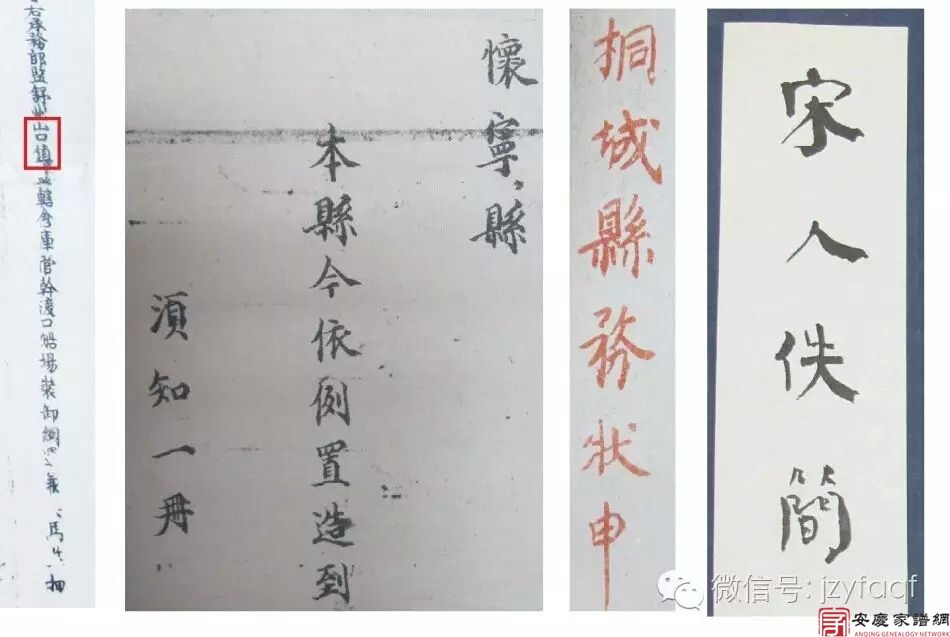 宋人佚簡
桐城縣務狀申
懷寧縣
本縣今依例置造到
須知一冊
右承務郎監舒州山口鎮
轄倉庫管幹渡口船場裝卸綱
馬
微信号: jzyfaqf
安慶家譜網
ANQING GENEALOGY NETWORK